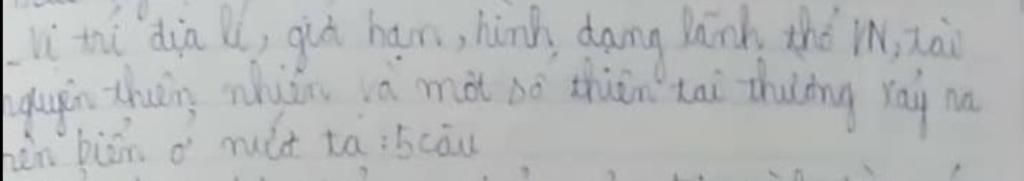 - Vị trí địa lí, giới hạn, hình dạng lãnh thổ VN, tài
nguyên thiên nhiên và một số thiên tai thường xảy ra
trên biển ở nước ta : 5 câu